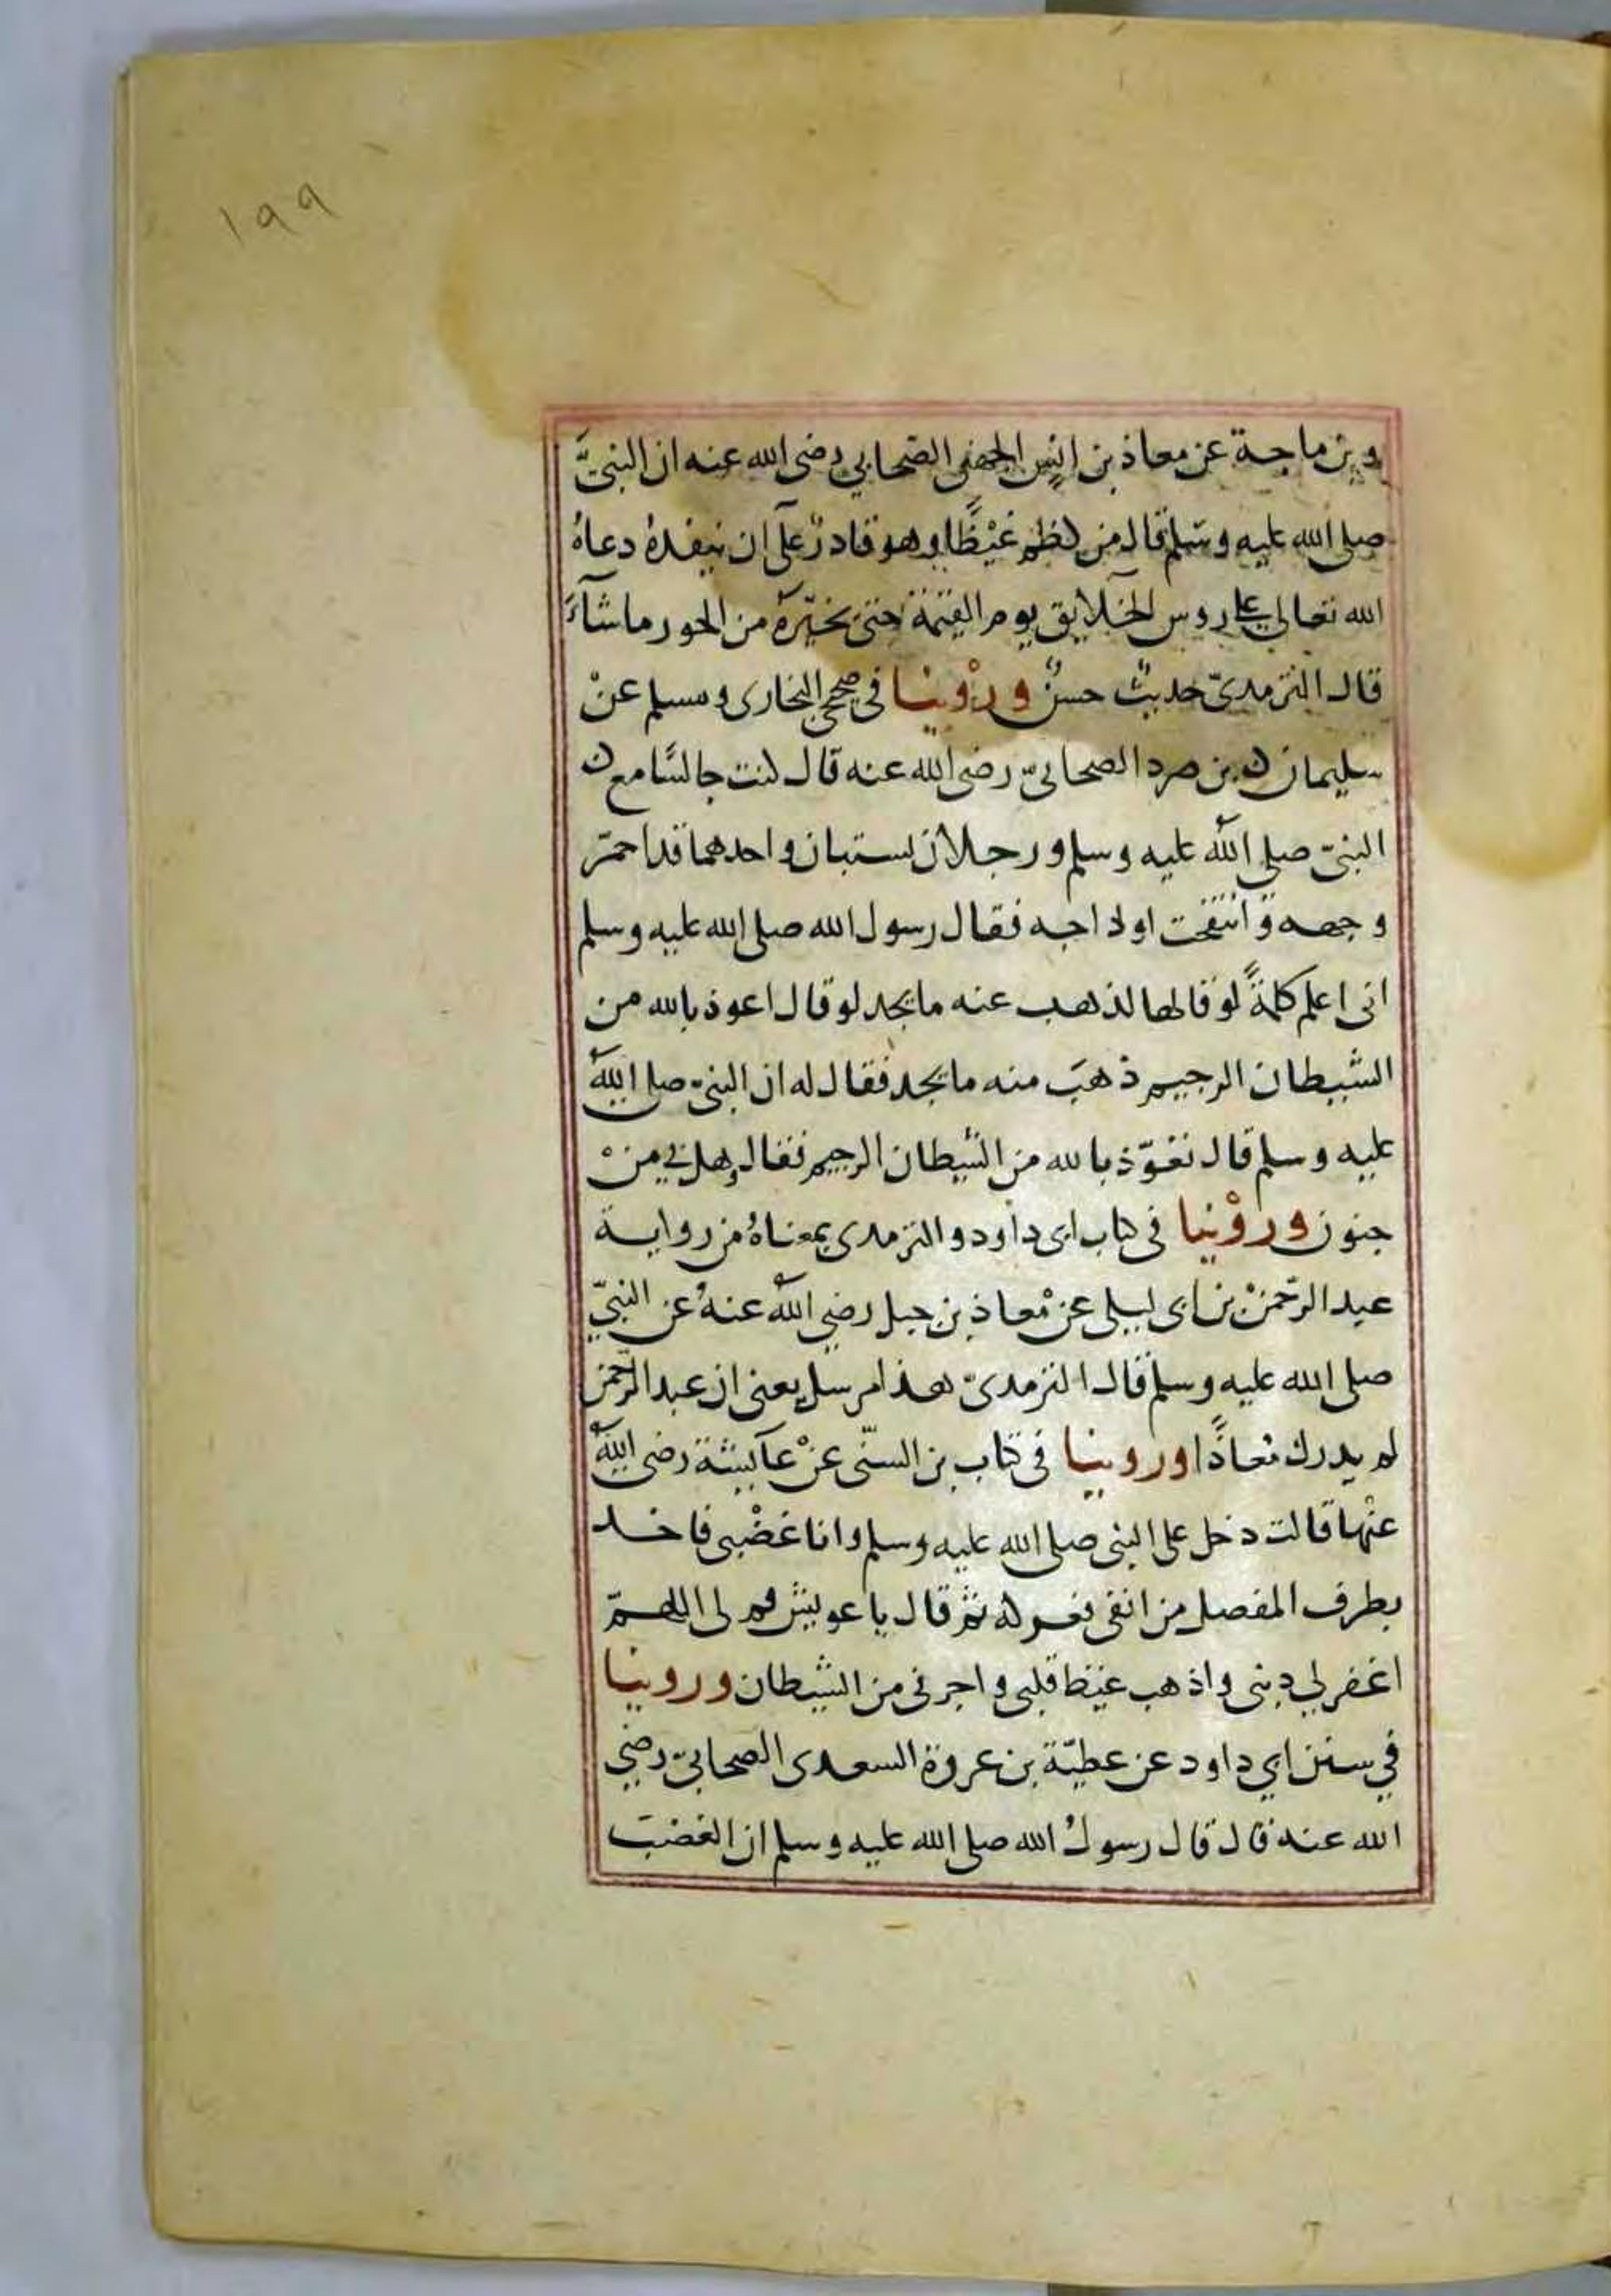 ١٩٩
وبن ماجة عن معاذ بن انس الجهني الصحابي رضى الله عنه ان النبيَّ
صلى الله عليه وسلم قال من كظم غيْظًا وهو قادرٌ على ان ينفذهُ دعاهُ
الله تعالى على روس الخلايق يوم القيمة حتى يخيّرهُ من الحور ماشآءَ
قال الترمدىّ حديثٌ حسنٌ ورؤينا في صحيحي البخارى ومسلم عنْ
سليمان بن صرد الصحابىّ رضى الله عنه قال كنت جالسًا مع
النبىّ صلى الله عليه وسلم ورجلان يستبان واحدهما قد احمرّ
وجهه وانتفخت اوداجه فقال رسول الله صلى الله عليه وسلم
انى اعلم كلمةً لو قالها لذهب عنه ما يجد لو قال اعوذ بالله من
الشيطان الرجيم ذهبَ منه ما يجد فقال له ان النبىّ صلى الله
عليه وسلم قال تعوّذ بالله من الشيطان الرجيم فقال وهل بي منْ
جنون ورؤينا فى كتاب ابى داود والترمدى بمعناهُ من رواية
عبد الرّحمنْ بن ابى ليلى عن معاذ بن جبل رضى الله عنهُ عن النبيّ
صلى الله عليه وسلم قال الترمدىّ هذا مرسل يعنى ان عبد الرّحمن
لم يدرك معاذًا وروينا فى كتاب بن السنّى عنْ عآيشة رضى الله
عنْها قالت دخل على النبى صلى الله عليه وسلم وانا غضْبى فاخد
بطرف المفصل من انفى فعركه ثم قال يا عويش قولى اللهمّ
اغفر لي دنبى واذهب غيظ قلبى واجرنى من الشيطان وروينا
في سنن ابي داود عن عطيّة بن عروة السعدى الصحابىّ رضي
الله عنه قال قال رسولُ الله صلى الله عليه وسلم ان الغضبَ